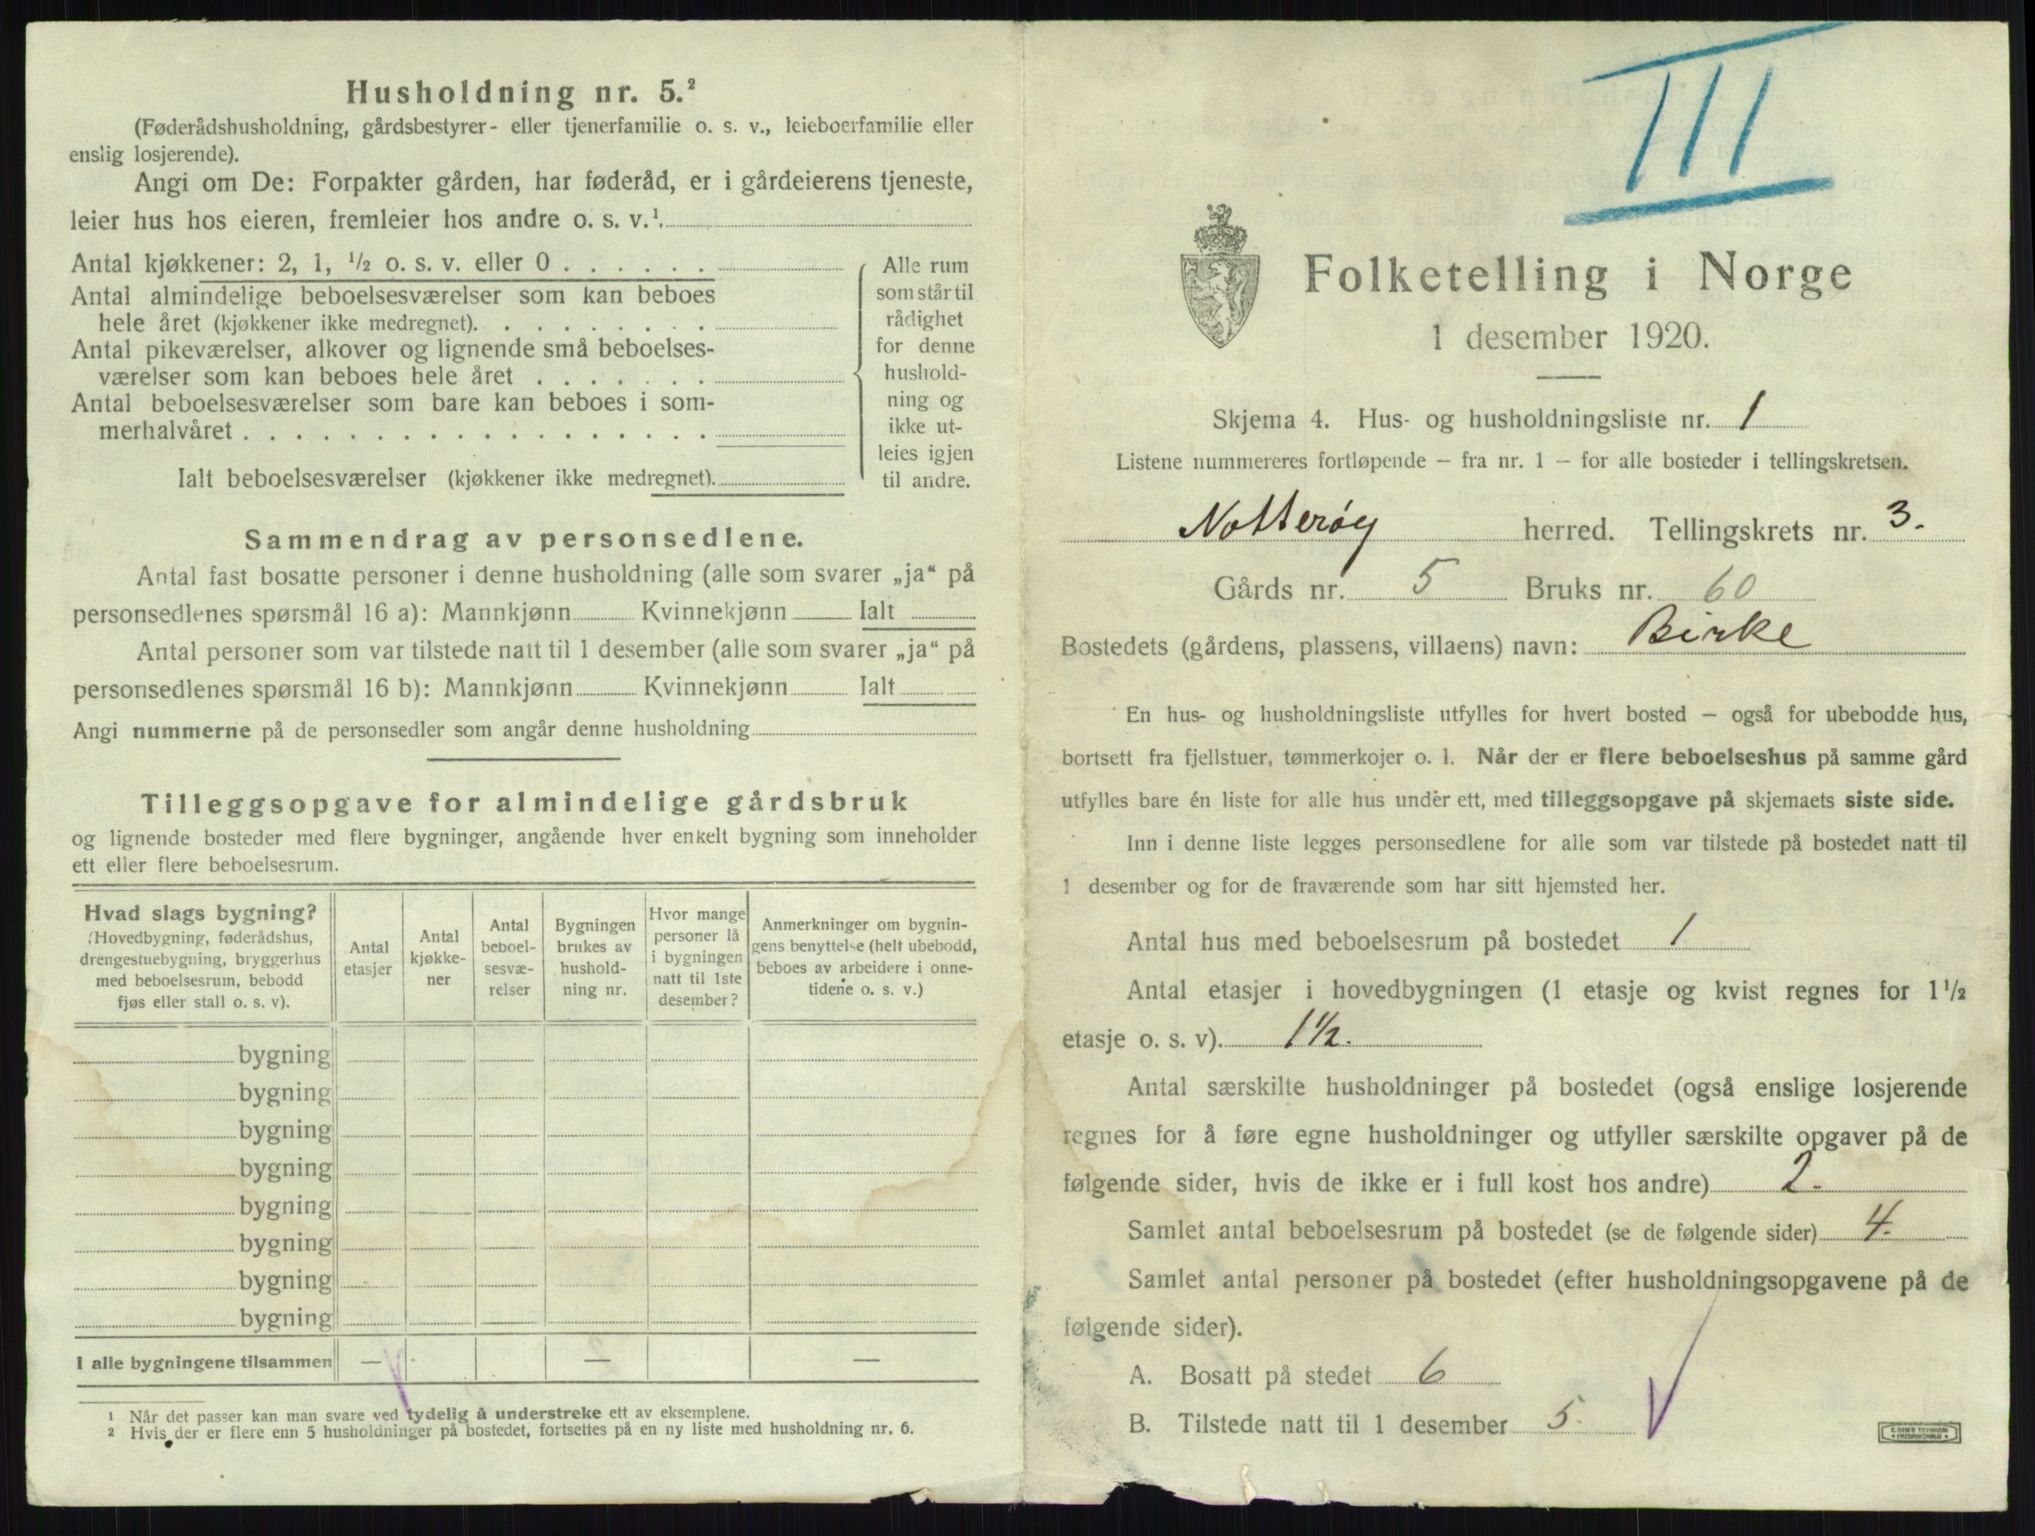 Husholdning nr. 5.²
(Føderådshusholdning, gårdsbestyrer- eller tjenerfamilie o. s. v., leieboerfamilie eller
enslig losjerende).
Angi om De: Forpakter gården, har føderåd, er i gårdeierens tjeneste,
leier hus hos eieren, fremleier hos andre o. s. v.¹.
Antal kjøkkener: 2, 1, ½ o. s. v. eller 0 . . . . . .
Antal almindelige beboelsesværelser som kan beboes
hele året (kjøkkener ikke medregnet). . . . . . . . .
Antal pikeværelser, alkover og lignende små beboelses-
værelser som kan beboes hele året . . . . . . .
Antal beboelsesværelser som bare kan beboes i som-
merhalvåret . . . . . . . . . . . . . . . . . .
Ialt beboelsesværelser (kjøkkener ikke medregnet).
Alle rum
som står til
rådighet
for denne
hushold-
ning og
ikke ut-
leies igjen
til andre.
Sammendrag av personsedlene.
Antal fast bosatte personer i denne husholdning (alle som svarer „ja“ på
personsedlenes spørsmål 16 a): Mannkjønn Kvinnekjønn Ialt
Antal personer som var tilstede natt til 1 desember (alle som svarer „ja“ på
personsedlenes spørsmål 16 b): Mannkjønn Kvinnekjønn Ialt
Angi nummerne på de personsedler som angår denne husholdning
Tilleggsopgave for almindelige gårdsbruk
og lignende bosteder med flere bygninger, angående hver enkelt bygning som inneholder
ett eller flere beboelsesrum.
Hvad slags bygning?
(Hovedbygning, føderådshus,
drengestuebygning, bryggerhus
med beboelsesrum, bebodd
fjøs eller stall o. s. v).
Antal
etasjer
Antal
kjøkke-
ner
Antal
beboel-
sesvæ-
relser
Bygningen
brukes av
hushold-
ning nr.
Hvor mange
personer lå
i bygningen
natt til 1ste
desember?
Anmerkninger om bygnin-
gens benyttelse (helt ubebodd,
beboes av arbeidere i onne-
tidene o. s. v.)
bygning
bygning
bygning
bygning
bygning
bygning
bygning
bygning
I alle bygningene tilsammen — — —
¹ Når det passer kan man svare ved tydelig å understreke ett av eksemplene.
² Hvis der er flere enn 5 husholdninger på bostedet, fortsettes på en ny liste med husholdning nr. 6.
III
Folketelling i Norge
1 desember 1920.
Skjema 4. Hus- og husholdningsliste nr. 1
Listene nummereres fortløpende – fra nr. 1 – for alle bosteder i tellingskretsen.
Notterøy herred. Tellingskrets nr. 3.
Gårds nr. 5 Bruks nr. 60
Bostedets (gårdens, plassens, villaens) navn: Birke
En hus- og husholdningsliste utfylles for hvert bosted – også for ubebodde hus,
bortsett fra fjellstuer, tømmerkojer o. l. Når der er flere beboelseshus på samme gård
utfylles bare én liste for alle hus under ett, med tilleggsopgave på skjemaets siste side.
Inn i denne liste legges personsedlene for alle som var tilstede på bostedet natt til
1 desember og for de fraværende som har sitt hjemsted her.
Antal hus med beboelsesrum på bostedet 1
Antal etasjer i hovedbygningen (1 etasje og kvist regnes for 1½
etasje o. s. v). 1½.
Antal særskilte husholdninger på bostedet (også enslige losjerende
regnes for å føre egne husholdninger og utfyller særskilte opgaver på de
følgende sider, hvis de ikke er i full kost hos andre) 2.
Samlet antal beboelsesrum på bostedet (se de følgende sider) 4.
Samlet antal personer på bostedet (efter husholdningsopgavene på de
følgende sider).
A. Bosatt på stedet 6
B. Tilstede natt til 1 desember 5.